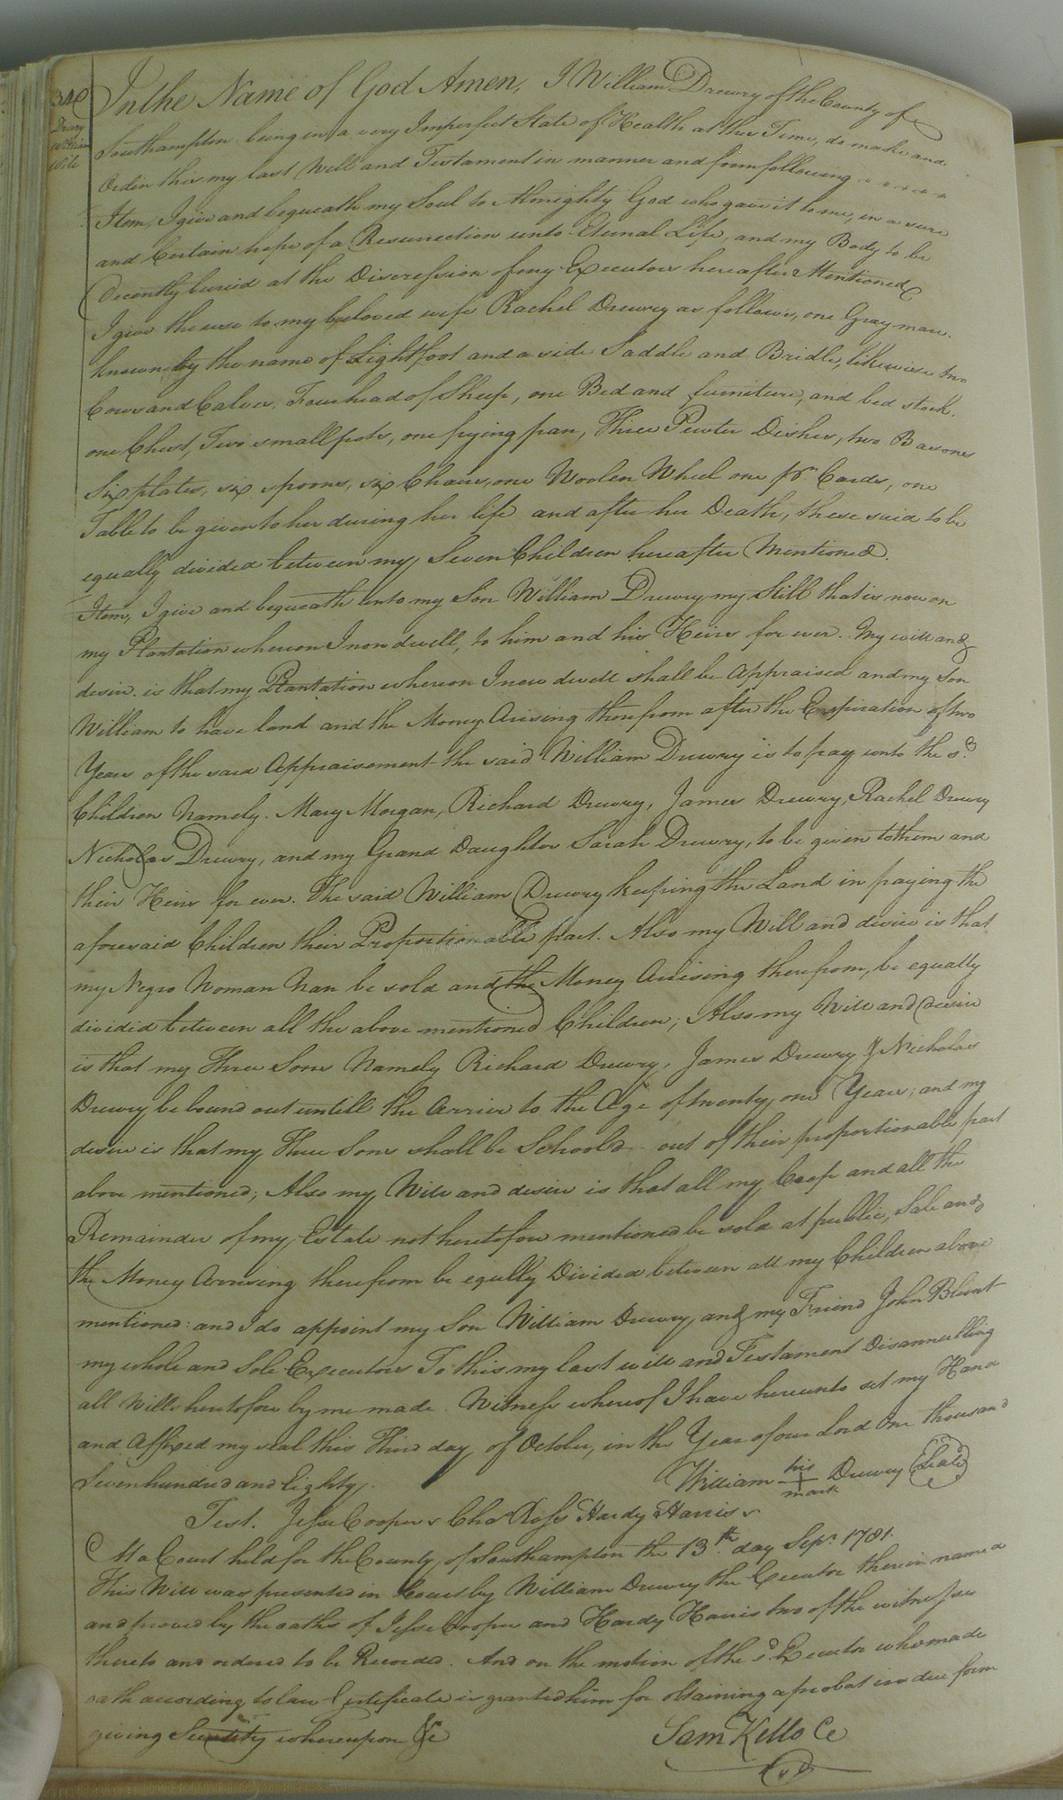 340
Drury
William
Will
In the Name of God Amen, I William Drewry of the County of
Southampton being in a very Imperfect State of Health at this Time, do make and
Ordin this my last Will and Testament in manner and form following
Item, I give and bequeath my Soul to Almighty God who gave it to me, in a sure
and Certain hope of a Resurrection unto Eternal Life, and my Body to be
decently buried at the Discression of my Executors hereafter Mentioned
I give the use to my beloved wife Rachel Drewry as follows, one Gray mare
known by the name of Lightfoot and a side Saddle and Bridle, likewise two
Cows and Calves, Four head of Sheep, one Bed and furniture, and bed stock.
one Chest, Two small pots, one frying pan, Three Pewter Dishes, two Basones
Six plates, six spoons, six Chairs, one Woolen Wheel one pr. Cards, one
Table to be given to her during her life and after her Death, these said to be
equally divided between my Seven Children hereafter Mentioned.
Item, I give and bequeath unto my Son William Drewry my Still that is now on
my Plantation whereon I now dwell, to him and his Heirs for ever. My will and
desire is that my Plantation whereon I now dwell shall be Appraised and my Son
William to have land and the Money Arising therefrom after the Expiration of two
Years of the said Appraisement the said William Drewry is to pay unto the sd.
Children Namely. Mary Morgan, Richard Drewry, James Drewry, Rachel Drewry
Nicholas Drewry, and my Grand Daughter Sarah Drewry, to be given to them and
their Heirs for ever. The said William Drewry keeping the Land in paying the
aforesaid Children their Proportionable part. Also my Will and desire is that
my Negro Woman Nan be sold and the Money Arising therefrom, be equally
divided between all the above mentioned Children; Also my Will and desire
is that my Three Sons Namely Richard Drewry, James Drewry & Nicholas
Drewry be bound out untill the Arrive to the Age of twenty one Years; and my
desire is that my Three Sons shall be Schoold out of their proportionable part
above mentioned; Also my Will and desire is that all my Crop and all the
Remainder of my Estate not heretofore mentioned be sold at public Sale and
the Money Arrising therefrom be equlily Divided between all my Children above
mentioned: and I do appoint my Son William Drewry and my Friend John Blunt
my whole and Sole Executors To this my last will and Testament Disannulling
all Wills heretofore by me made. Witness whereof I have hereunto set my Hand
and Affixed my seal this Third day of October, in the Year of our Lord One thousand
Seven hundred and Eighty.
William his + mark Drewry (Seal)
Test. Jesse Cooper, Chas Ross Hardy Harris
At a Court held for the County of Southampton the 13.th day Sepr. 1781.
This Will was presented in Court by William Drewry the Executor therein named
and proved by the oaths of Jesse Cooper and Hardy Harris two of the witnesses
thereto and ordered to be Recorded. And on the motion of the sd. Executor who made
oath according to law Certificate is granted him for obtaining a probat in due form
giving Security whereupon &c
Sam Kello CC